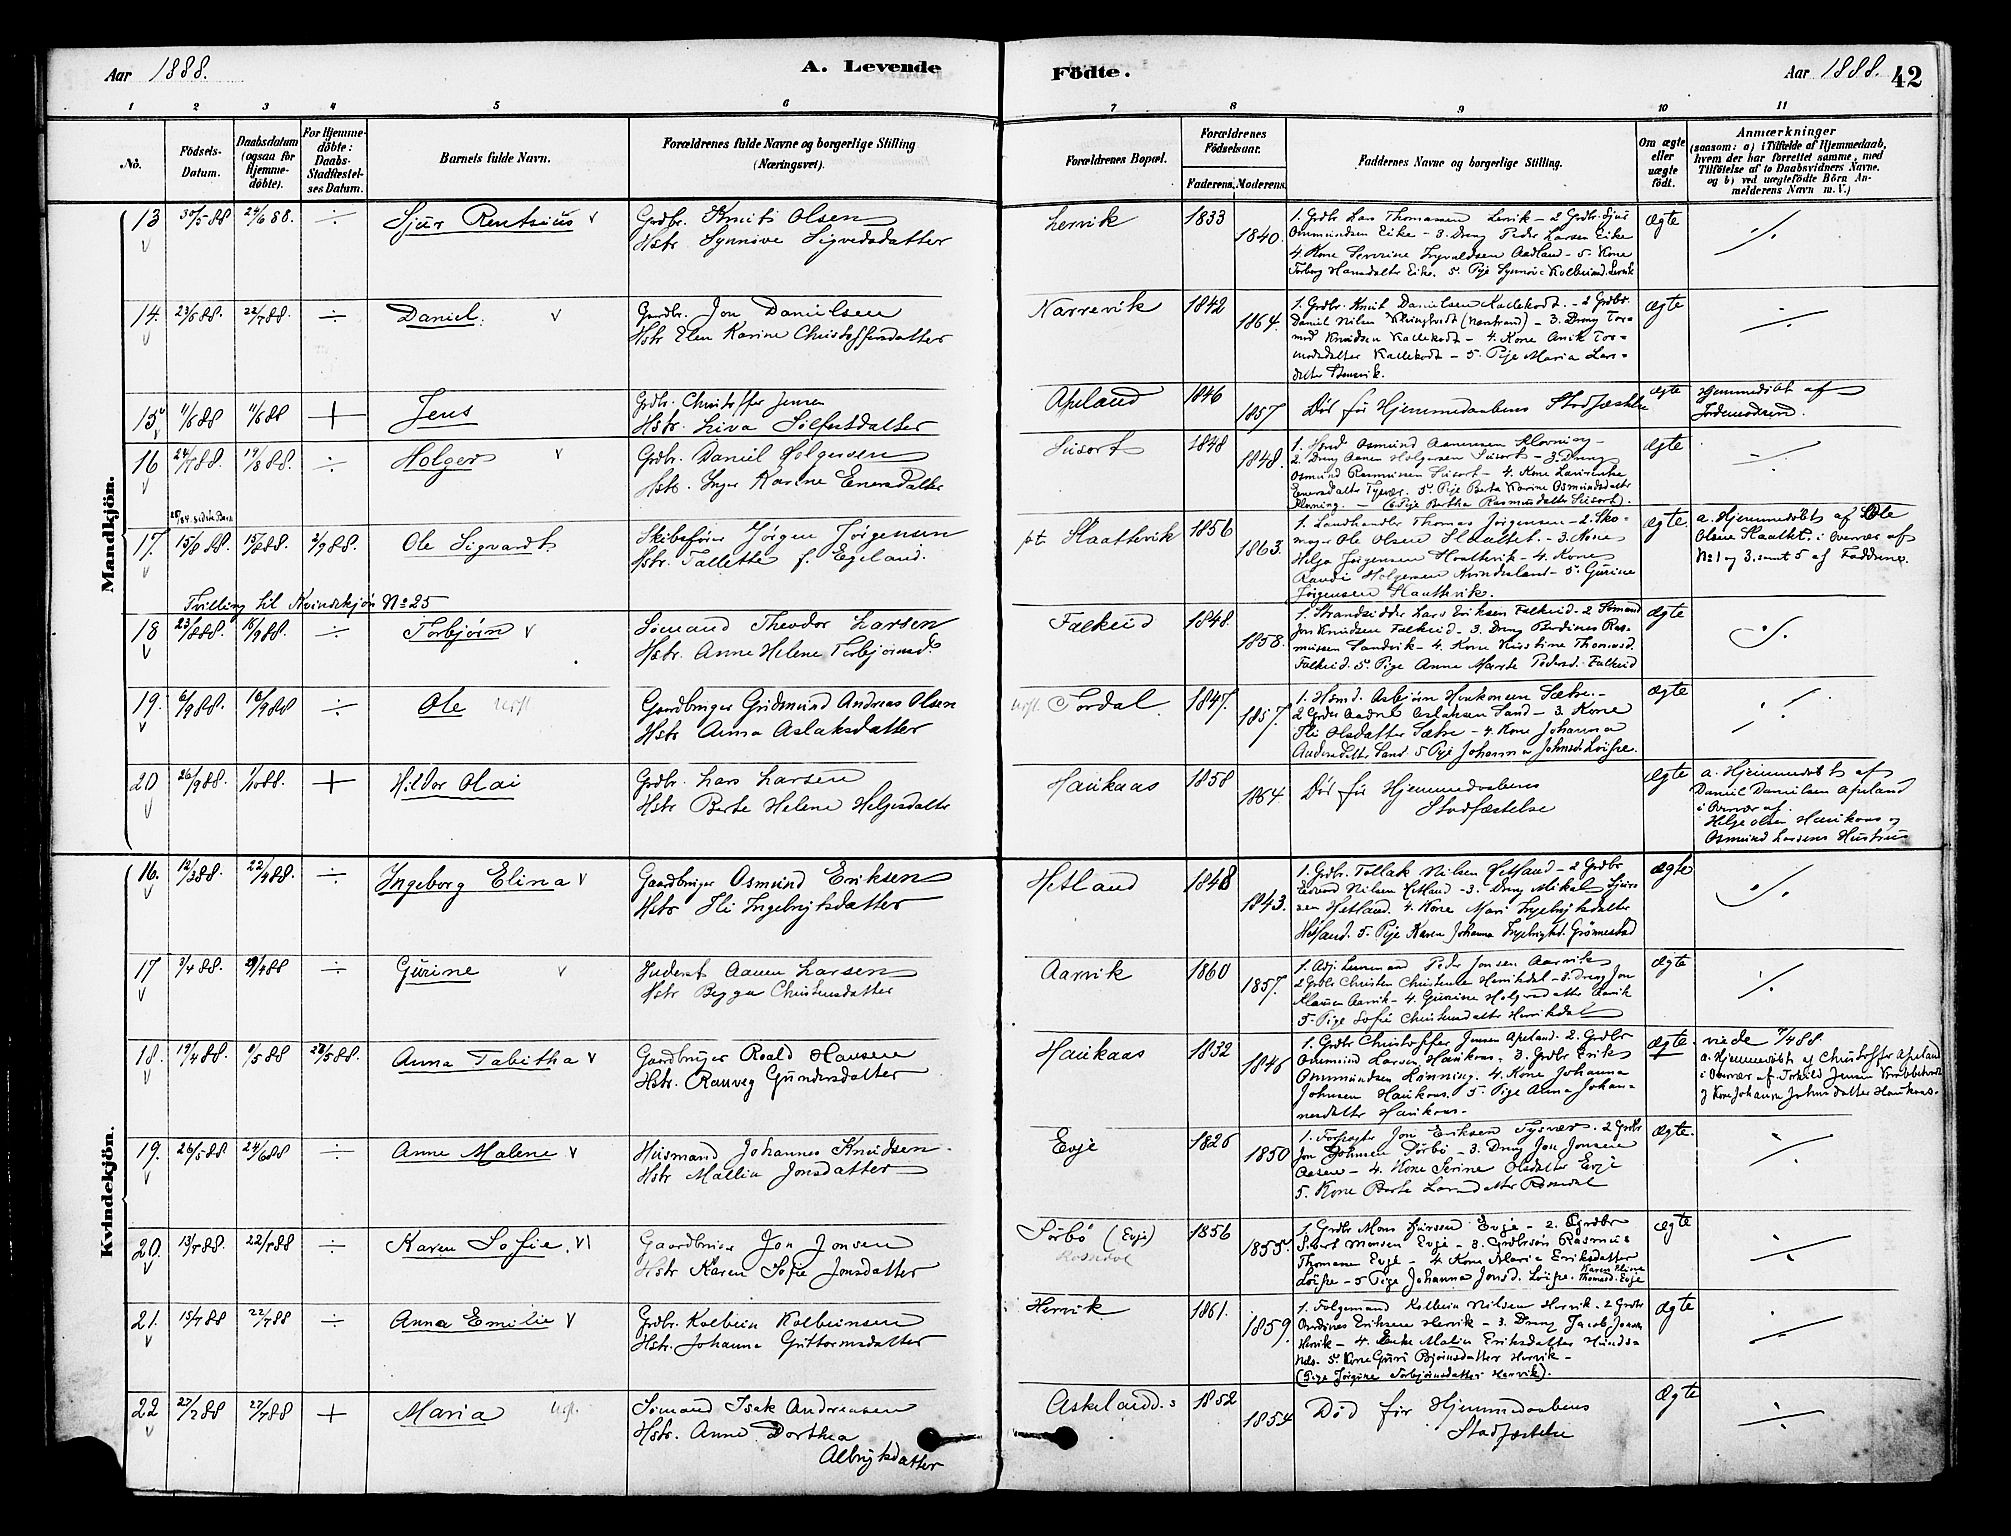 Aar 1888. A. Levende
Födte. Aar 1888. 42
1 2 3 4 5 6 7 8 9 10 11
No.
Födsels-
Datum.
Daabsdatum
(ogsaa for
Hjemme-
döbte).
For Hjemme-
döbte:
Daabs-
Stadfæstel-
ses Datum.
Barnets fulde Navn.
Forældrenes fulde Navne og borgerlige Stilling
(Næringsvei).
Forældrenes Bopæl.
Forældrenes
Födselsaar.
Faderens. Moderens.
Faddernes Navne og borgerlige Stilling.
Om ægte
eller
uægte
födt.
Anmærkninger
(saasom: a) i Tilfælde af Hjemmedaab,
hvem der har forrettet samme, med
Tilföielse af to Daabsvidners Navne,
og b) ved uægtefödte Börn An-
melderens Navn m. V.)
Mandkjön.
13 30/5 88 24/6 88. ÷ Sjur Rentzius v
Grdbr. Knut Olsen
Hstr. Synnöve Sigvedsdatter
Lervik 1833 1840.
1. Grdbr Lars Thomassen Lervik - 2 Grdbr. Sjur
Ommundsen Eike - 3. Dreng Peder Larsen Eike
4. Kone Severine Ingvaldsen Aadland - 5. Kone
Ægte
14. 23/5 88. 22/7 88. ÷ Daniel. v
Gardbr. Jon Danielsen
Hstr Elen Karine Christoffersdatter
Narrevik 1842 1864.
1. Grdbr. Knut Danielsen Kallekodt. - 2 Grdbr.
mod Knudsen Kallekodt - 4. Kone Anik Tor-
modsdatter Kallekodt - 5. Pige Maria Lars-
Ægte
15 11/6 88 11/6 88 + Jens
Grdbr. Christoffer Jensen
Hstr. Liva Sölfestdatter
Apeland 1846 1857.
Död för Hjemmedaabens Stadfæstelse
Ægte
Hjemmedöbt af
Jordemoderen.
16 24/7 88. 19/8 88. ÷ Holger v
Grdbr. Daniel Holgersen
Hstr. Inger Karine Enersdatter
Susort 1848 1848.
Osmund Rasmussen Susort - 4. Kone
Enersdatter Tysvær. 5. Pige Berta Karine Osmundsdatter
Klovning. - (6 Pige Bertha Rasmusdatter Susort).
Ægte
17. 15/8 88. 15/8 88. 2/9 88. Ole Sigvardt
Skibsförer Jörgen Jörgensen
Hstr. Tallette f. Egeland.
pt. Slaattevik 1856 1863.
1. Landhandler Thomas Jörgensen - 2. Sko-
mager Ole Olsen Slaattet. - 3. Kone
Helga Jörgensen Slaattevik - 4. Kone
Randi Holgersen Kvindesland - 5. Gurine
Jörgensen Slaattevik.
Ægte.
a. Hjemmedöbt af Ole
Olsen Slaattet i Overvær af
No 1 og 3. samt 5 af Fadderne.
Tvilling til Kvindekjön No 25
18 23/8 88. 16/9 88. ÷ Torbjörn v
Sömand Theodor Larsen
Hstr. Anne Helene Torbjörnsd.
Falkeid 1848. 1858.
1. Strandsidder Lars Eriksen Falkeid - 2 Sömand
Jon Knudsen Falkeid - 3. Dreng Berdines Ras-
mussen Sandvik - 4. Kone Kirstine Thomasd.
Falkeid. 5. Pige Anne Marte Pedersd. Falkeid
Ægte
19. 6/9 88. 16/9 88 ÷ Ole
Gaardbruger Gudmund Andreas Olsen
Hstr Anna Aslaksdatter
Fordal. 1847. 1857.
1. Husmd. Asbjörn Haakonsen Sætre. -
2 Grdbr Aadne Aslaksen Sand - 3. Kone
Eli Olsdatter Sætre - 4. Kone Johanna
Ægte
20 26/9 88. 1/10 88. + Hildor Olai
Grdbr. Lars Larsen
Hstr Berte Helene Helgesdatter
Haukaas 1858 1864.
Död för Hjemmedaabens
Stadfæstelse
Ægte
a. Hjemmedöbt af
Daniel Danielsen Apeland
i Overvær af.
Helge Olsen Haukaas og
Osmund Larsens Hustru
Kvindekjön.
16. 12/3 88. 22/4 88. ÷ Ingeborg Elina v
Gaardbruger Osmund Eriksen
Hstr Eli Ingebrigtsdatter
Hetland 1848 1843.
1. Grdbr. Tollak Nilsen Hetland - 2 Grdbr
Eivind Nilsen Hetland - 3. Dreng Mikal Sjur-
sen Hetland. 4. Kone Mari Ingebrigtsdatter
Hetland. 5. Pige Karen Johanna Ingebrigtsd. Grönnestad
Ægte
17 3/4 88. 29/4 88 ÷ Gurine v
Inderst Aanen Larsen
Hstr Begga Christensdatter
Aarvik 1860 1857.
2 Grdbr Christen Christensen Hervikdal - 3. Dreng Jon
Klausen Aarvik - 4. Gurine Holgersdatter Aarvik
5. Pige Sofie Christensdatter Hervikdal
Ægte
18. 19/4 88. 9/5 88 28/5 88. Anna Tabitha v
Gaardbruger Roald Hansen
Hstr. Ranveg Gundersdatter
Haukaas 1832 1846
1. Grdbr Christoffer Jensen Apeland. 2. Grdbr
Ommund Larsen Haukaas. 3. Grdbr Erik
Ommundsen Rönning. 4. Kone Johanna
Johnsen Haukaas. 5. Pige Anna Johan-
nesdatter Haukaas.
Ægte
a. Hjemmedöbt af Christoffer Apeland
i Overvær af Torkild Jensen
og Kone Johanna Johnsdatter Haukaas.
19. 26/5 88 24/6 88 ÷ Anne Malene v
Husmand Johannes Knudsen
Hstr Mallin Jonsdatter
Evje 1826 1850
1. Forpagter Jon Eriksen Tysvær. 2 Grdbr
Jon Johnsen Sörbö - 3. Dreng Jon Jonsen
Aasen - 4. Kone Serine Olsdatter Evje
5. Kone Berte Larsdatter Rossedal
Ægte.
20. 13/7 88. 22/7 88 ÷ Karen Sofie. v
Gaardbruger Jon Jonsen
Hstr Karen Sofie Jonsdatter
Sörbö (Evje)
Rossedal
1856 1855.
1. Grdbr Mons Sjursen Evje - 2. Grdbr
Sjurt Monsen Evje - 3. Grdbrsön Rasmus
Thomasen Evje - 4 Kone Marie Eriksdatter
Löifre - 5 Pige Johanna Jonsd. Löifre. Karen Eline
Thomasd. Evje
Ægte
21. 15/7 88 22/7 88 ÷ Anna Emilie v
Grdbr. Kolbein Kolbeinsen
Hstr. Johanna Guttormsdatter
Hervik 1861. 1859.
1. Folgemand Kolbein Nilsen Hervik. 2 Grdbr
Berdines Eriksen Hervik - 3. Dreng Jacob Jonsen
Hervik - 4. Enke Malin Eriksdatter Hunds-
nes. 5. Kone Guri Björnsdatter Hervik -
(Pige Jörgine Torbjörnsdatter Hervik).
Ægte
22 27/7 88 27/7 88 + Maria
Sömand Isak Andreassen
Hstr. Anne Dorthea
Albrigtsdatter
Askeland. 1852 1854
Död för Hjemmedaabens
Stadfæstelse
Ægte